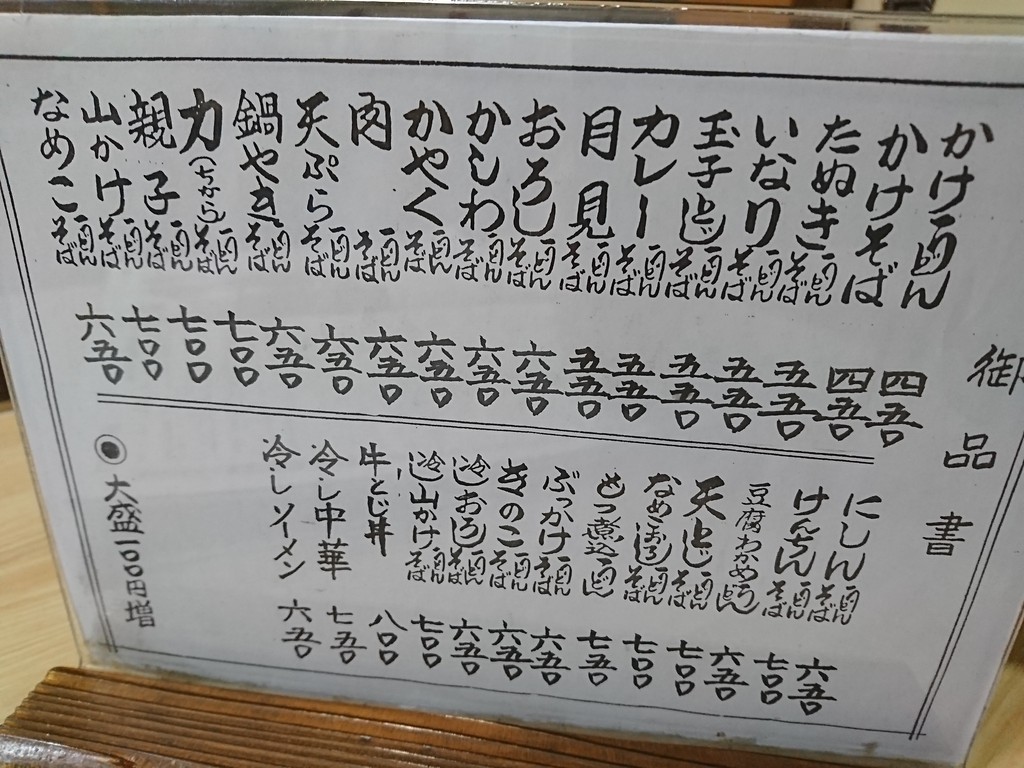 御品書
かけうどん 四五〇
かけそば 四五〇
たぬき うどん そば 五五〇
いなり うどん そば 五五〇
玉子とじ うどん そば 五五〇
カレー うどん そば 五五〇
月見 うどん そば 五五〇
おろし うどん そば 六五〇
かしわ うどん そば 六五〇
かやく うどん そば 六五〇
肉 うどん そば 六五〇
天ぷら うどん そば 六五〇
鍋やき うどん そば 六五〇
力(ちから) うどん そば 七〇〇
親子 うどん そば 七〇〇
山かけ うどん そば 七〇〇
なめこ うどん そば 六五〇
にしん うどん そば 六五〇
けんちん うどん そば 七〇〇
豆腐わかめうどん 六五〇
天とじ うどん そば 七〇〇
なめこおろし うどん そば 七〇〇
もつ煮込うどん 七五〇
ぶっかけ うどん そば 六五〇
きのこ うどん そば 六五〇
冷しおろし うどん そば 六五〇
冷し山かけ うどん そば 七〇〇
牛とじ丼 八〇〇
冷し中華 七五〇
冷しソーメン 六五〇
◉大盛一〇〇円増